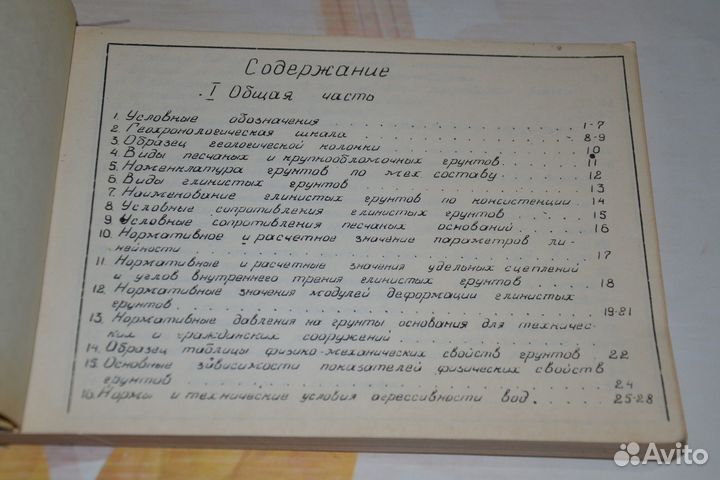 Содержание
I Общая часть
1. Условные обозначения 1-7
2. Геохронологическая шкала 8-9
3. Образец геологической колонки 10
4. Виды песчаных и крупнообломочных грунтов 11
5. Номенклатура грунтов по мех. составу 12
6. Виды глинистых грунтов 13
7. Наименование глинистых грунтов по консистенции 14
8. Условные сопротивления глинистых грунтов 15
9. Условные сопротивления песчаных оснований 16
10. Нормативное и расчетное значение параметров ли-
нейности 17
11. Нормативные и расчетные значения удельных сцеплений
и углов внутреннего трения глинистых грунтов 18
12. Нормативные значения модулей деформации глинистых
грунтов 19-21
13. Нормативные давления на грунты основания для техничес-
ких и гражданских сооружений
14. Образец таблицы физико-механических свойств грунтов 22
15. Основные зависимости показателей физических свойств
грунтов 24
16. Нормы и технические условия агрессивности вод. 25-28
Avito